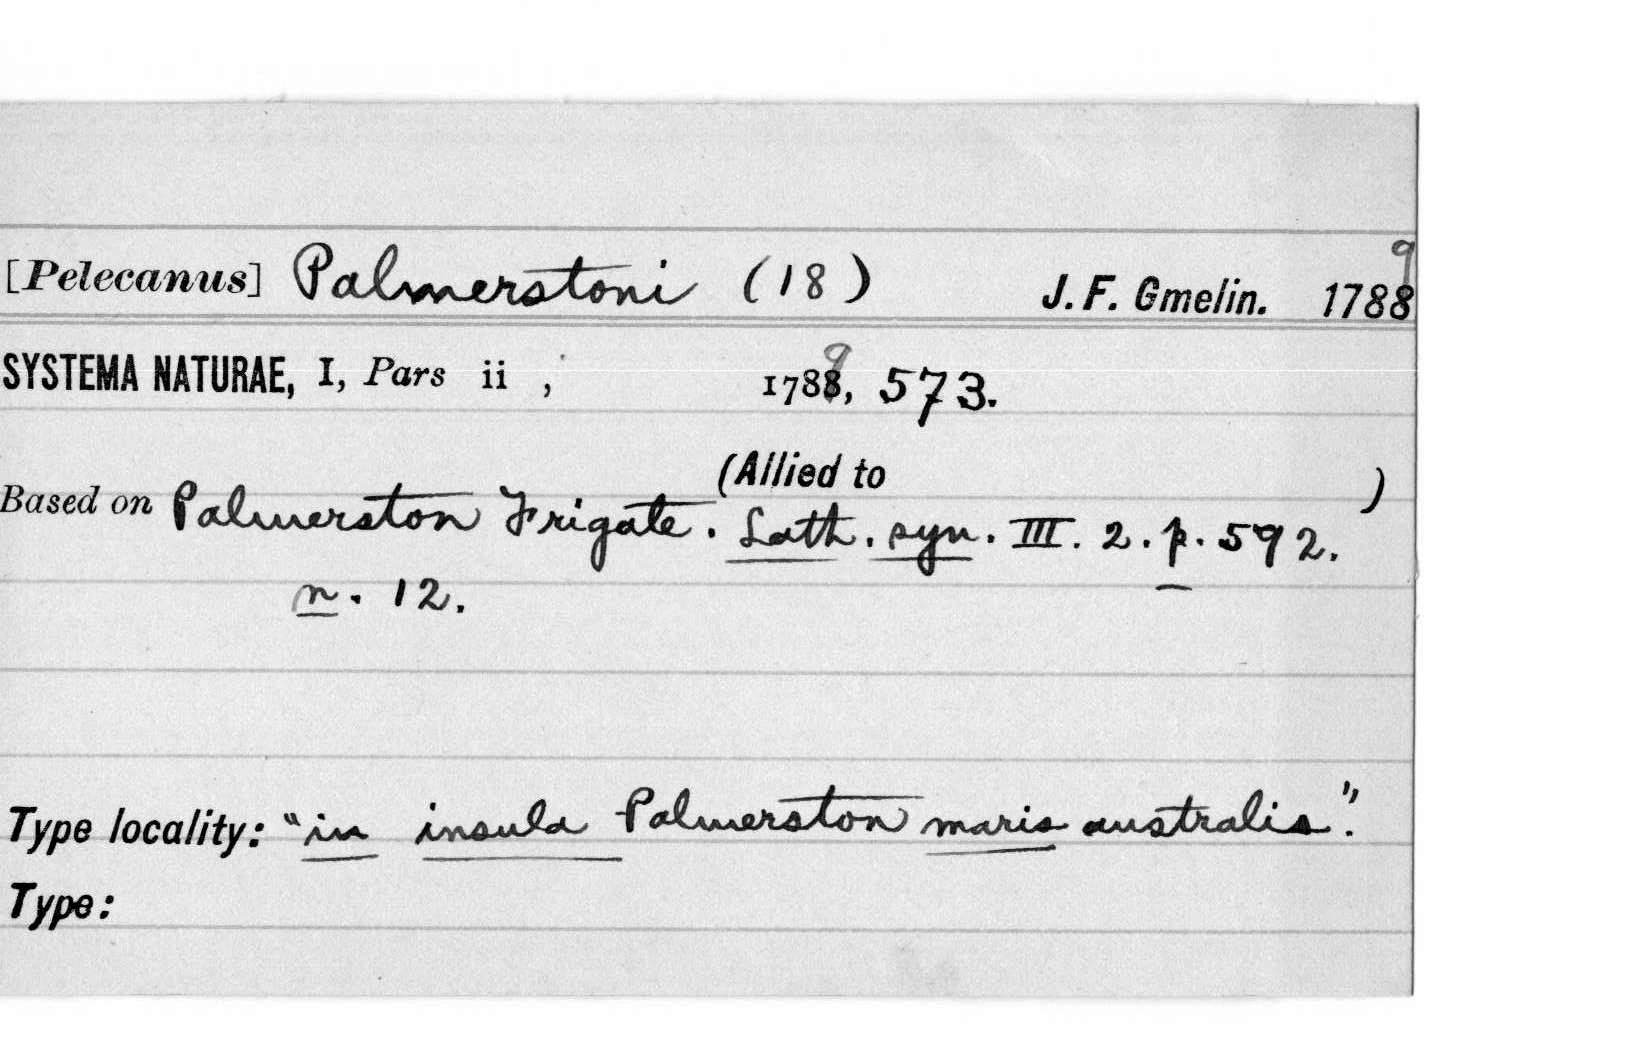 [Pelecanus] Palmerstoni (18) J. F. Gmelin. 1788 9
SYSTEMA NATURAE, I, Pars ii , 1788 9, 573.
(Allied to )
Based on Palmerston Frigate. Lath. syn. III. 2. p. 592.
n. 12.
Type locality: "in insula Palmerston maris australis".
Type: